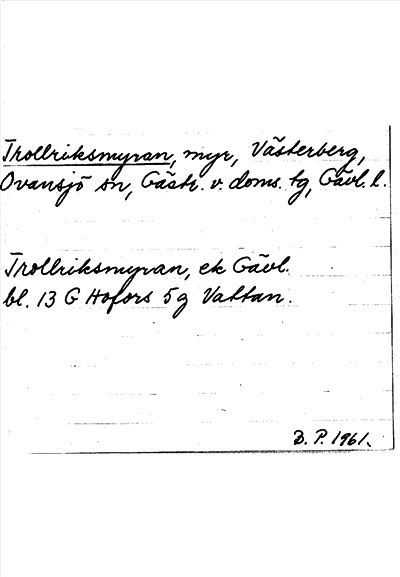 Trollriksmyran, myr, Västerberg,
Ovansjö sn, Gästr. v. doms. tg, Gävl. l.
Trollriksmyran, ek Gävl.
bl. 13 G Hofors 5 g Vattan.
B. P. 1961.